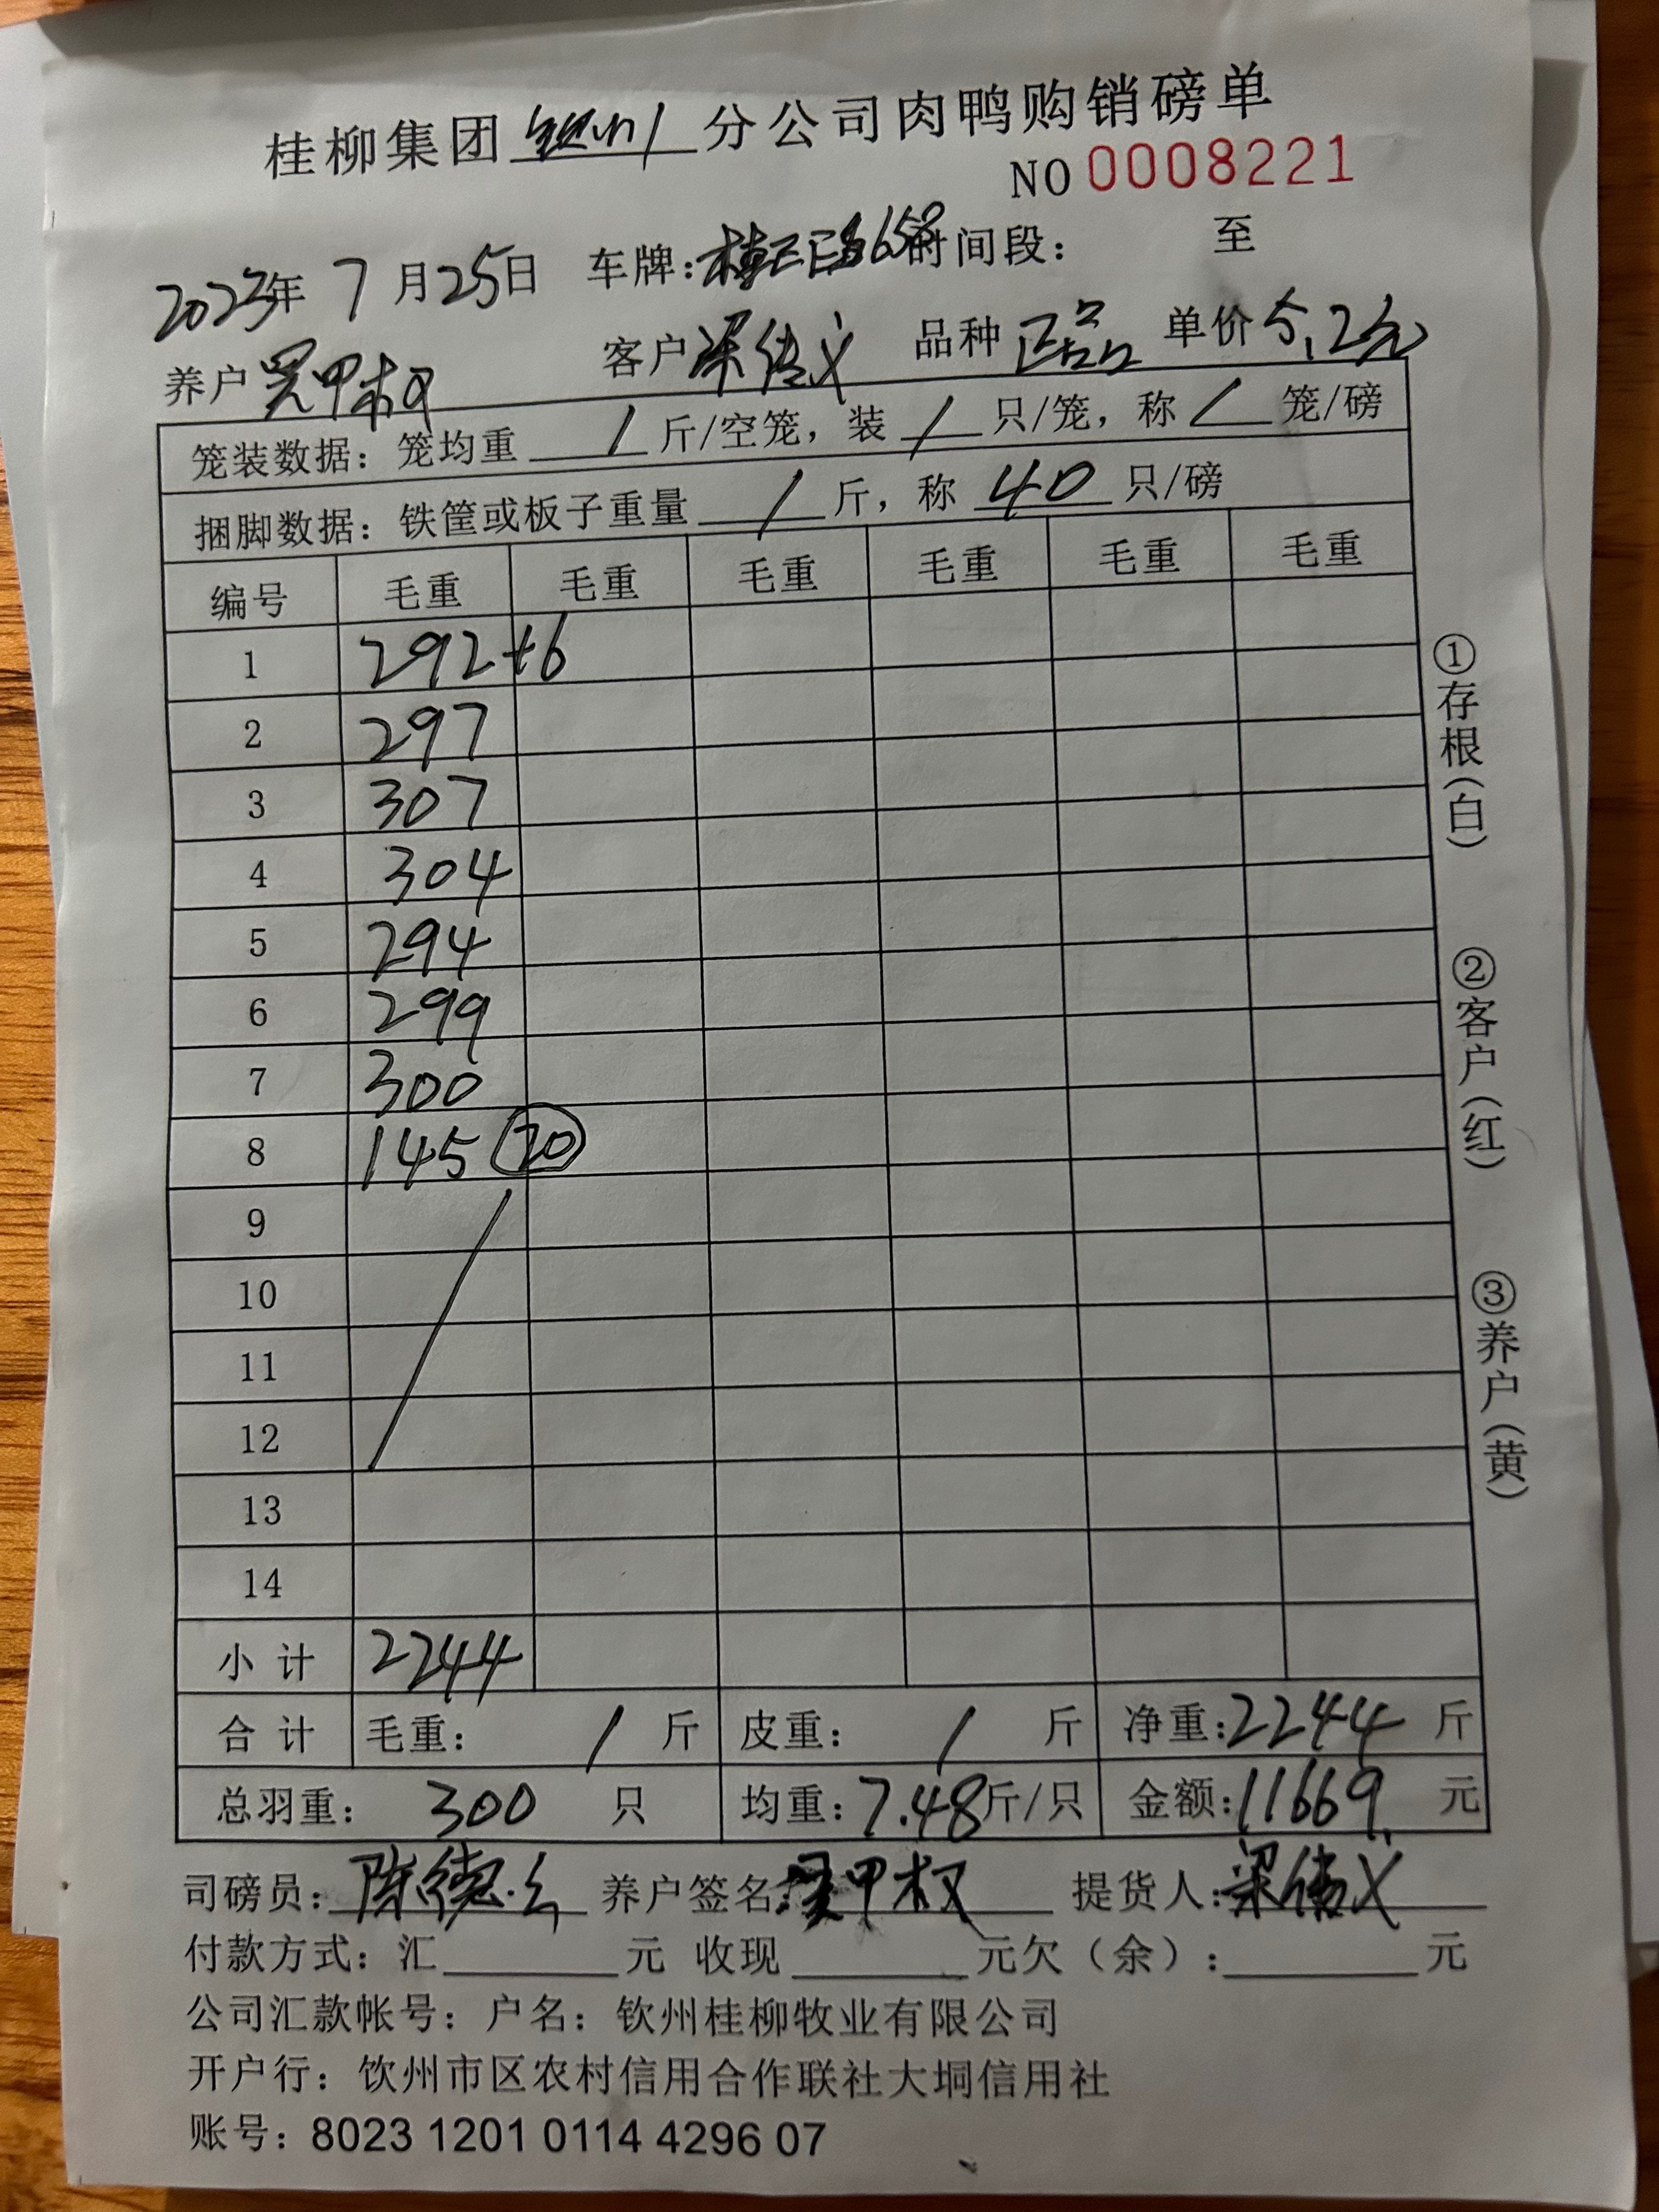 桂柳集团 钦州 分公司肉鸭购销磅单
NO 0008221
2023年 7 月 25 日 车牌: 时间段： 至
养户 客户 梁传义 品种 正品 单价 5.2元
笼装数据：笼均重 / 斤/空笼，装 / 只/笼，称 / 笼/磅
捆脚数据：铁筐或板子重量 / 斤，称 40 只/磅
编号 毛重 毛重 毛重 毛重 毛重 毛重
1 292+6
2 297
3 307
4 304
5 294
6 299
7 300
8 145 (20)
9
10
11
12
13
14
小 计 2244
合 计 毛重： / 斤 皮重： / 斤 净重:2244 斤
总羽重： 300 只 均重:7.48斤/只 金额:11669. 元
司磅员: 陈德 养户签名: 甲权 提货人: 梁传义
付款方式：汇 元 收现 元欠（余）: 元
公司汇款帐号：户名：钦州桂柳牧业有限公司
开户行：钦州市区农村信用合作联社大垌信用社
账号：8023 1201 0114 4296 07
①存根（白）
②客户（红）
③养户（黄）